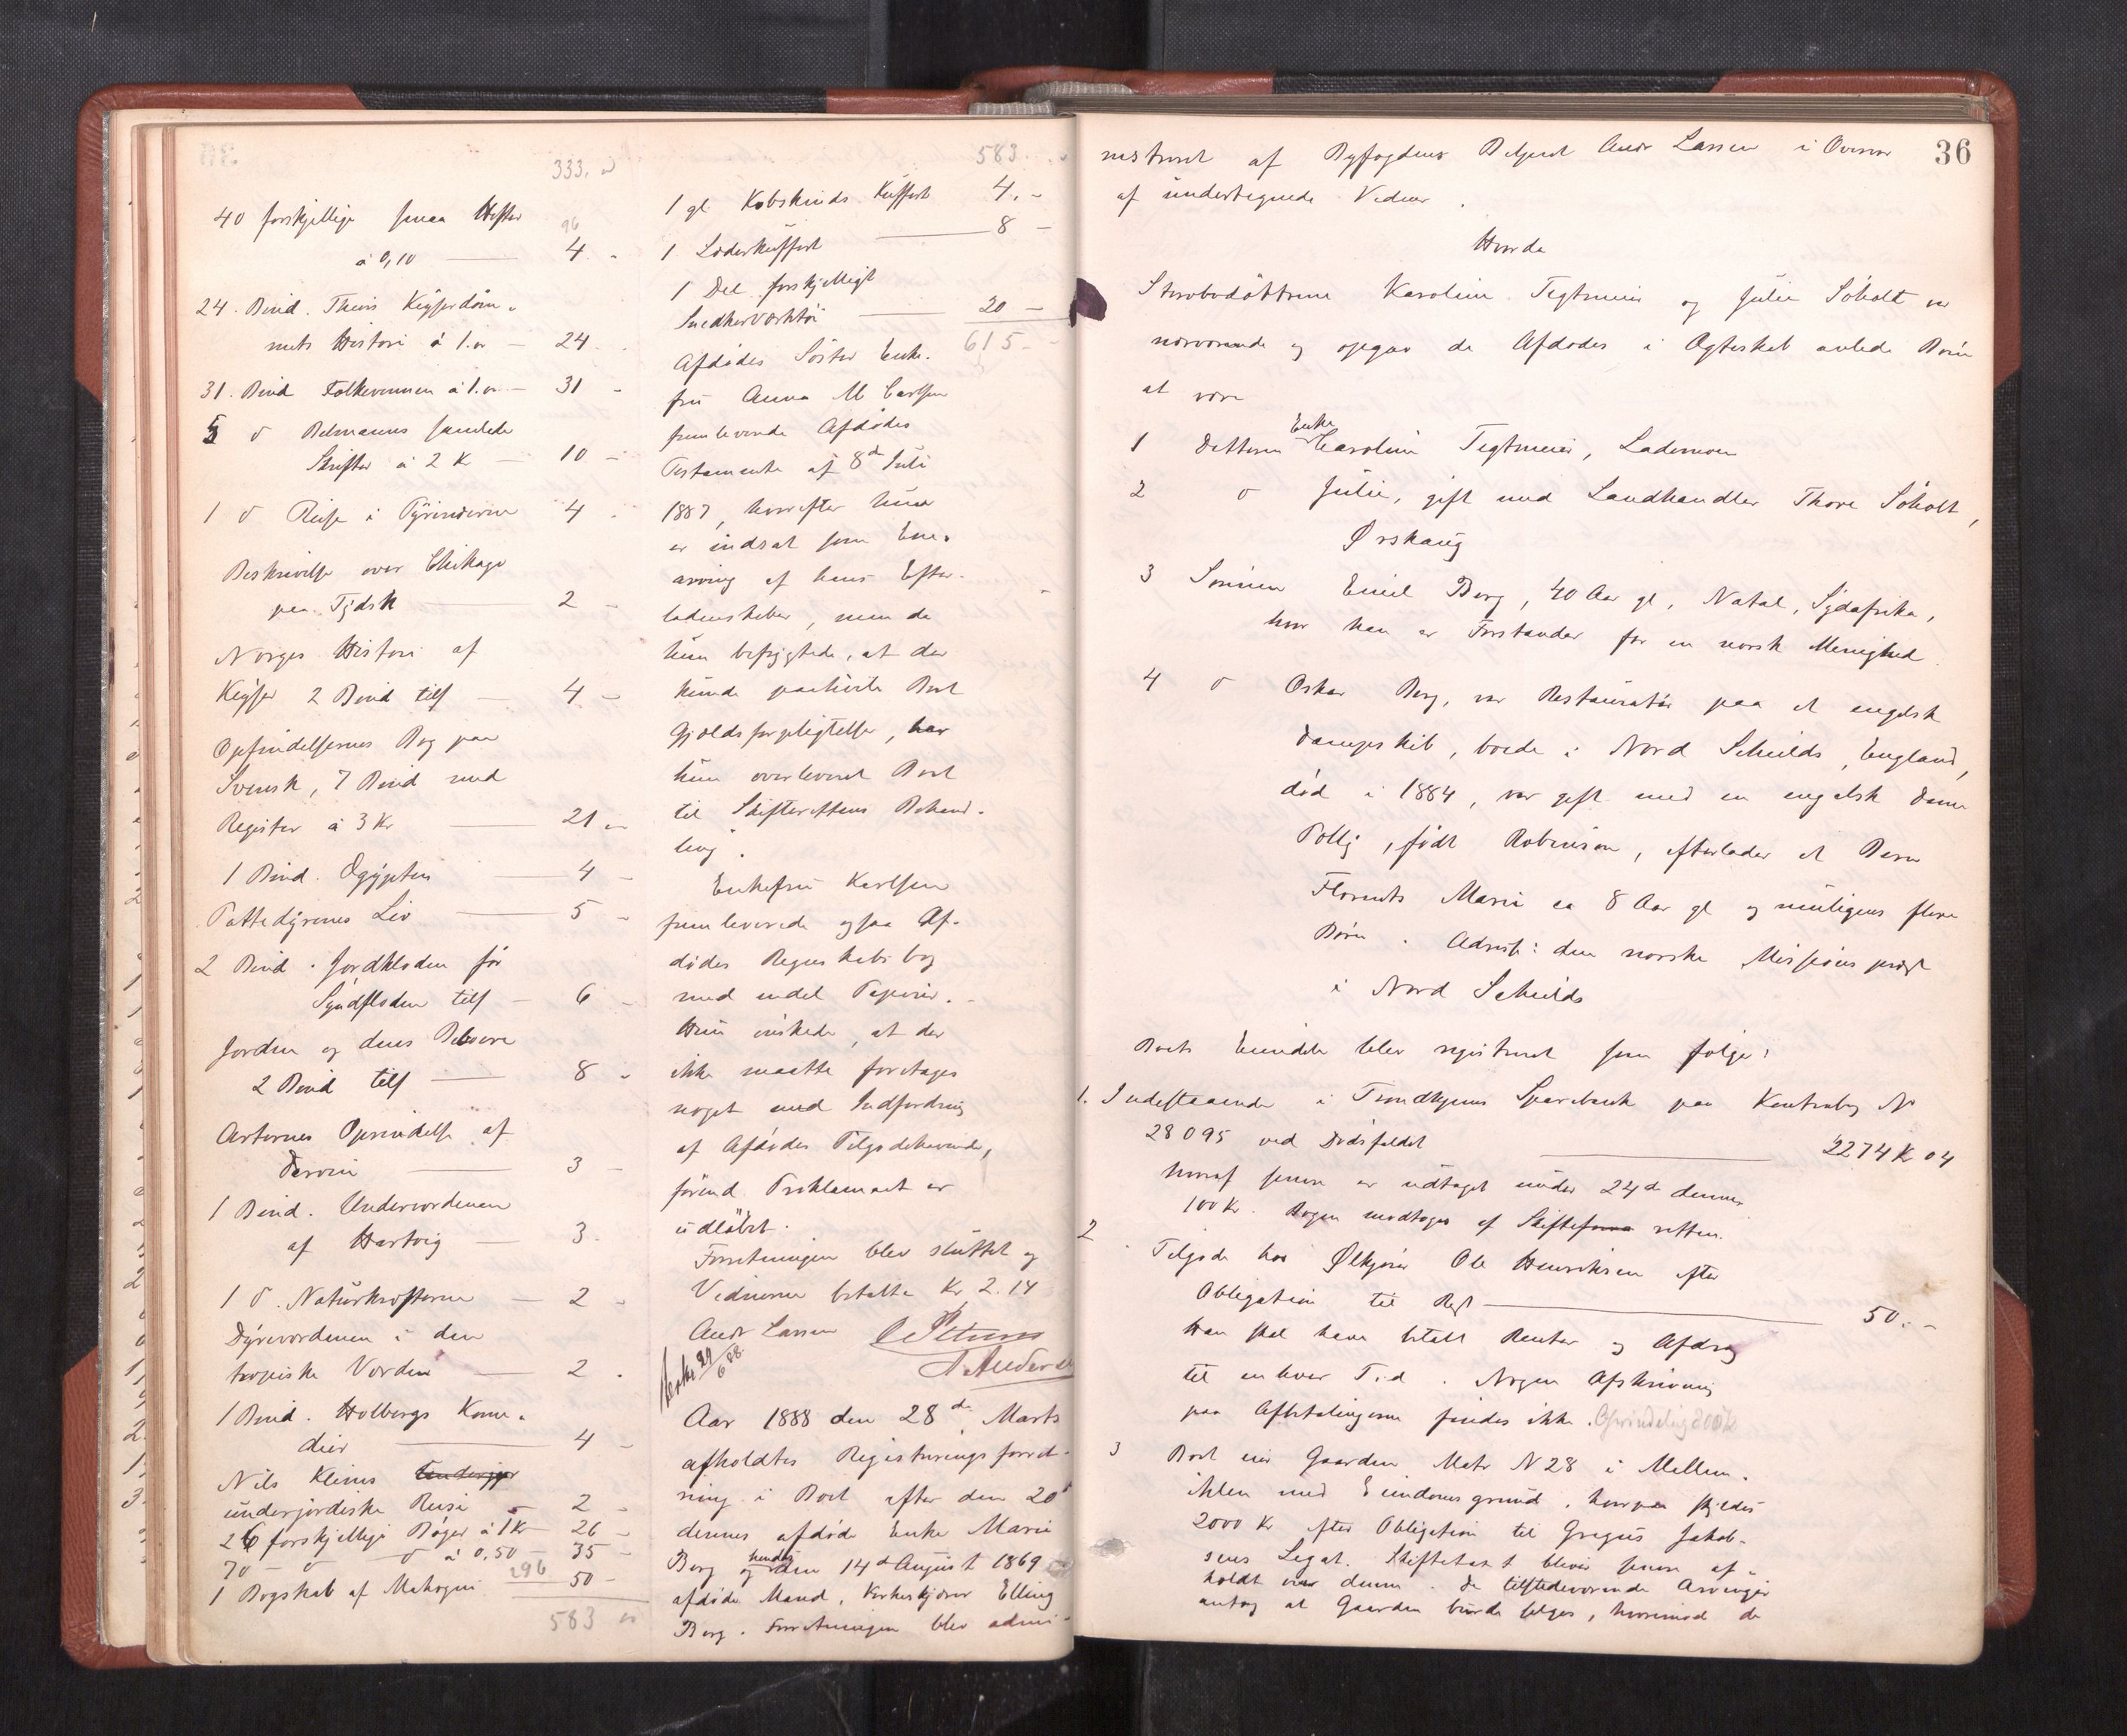 333.
40 forskjellige smaa Hefter
96
à 0,10 — 4. -
24. Bind. Thiers Keyserdöm-
mets Historie à 1. - 24.
31. Bind Folkevennen à 1. - 31 -
5 d Belmanns samlede
Skrifter à 2 Kr — 10 -
1 d Reise i Pyrenæerne 4 -
Beskrivelse over Chikago
paa Tydsk — 2 -
Norges Historie af
Keyser 2 Bind tils — 4 -
Opfindelsernes Bog paa
Svensk, 7 Bind med
Register à 3 Kr — 21 -
1 Bind. Ægypten — 4 -
Pattedyrenes Liv — 5 -
2 Bind. Jordkloden før
Syndfloden tils — 6 -
Jorden og dens Beboere
2 Bind tils — 8 -
Arternes Oprindelse af
Dervin — 3 -
1 Bind. Underverdenen
af Hartvig — 3.
1 d. Naturkræfterne — 2 -
Dyreverdenen i den
tropiske Verden — 2 .
1 Bind. Holbergs Kome-
dier — 4 -
Nils Kleims
underjordiske Reise — 2 -
26 forskjellige Bøger à 1 Kr 26 -
70 — d — d à 0,50 — 35 -
296
1 Bogskab af Mahogni 50 -
583
583.
1 gl Kobskinds Kuffert 4. -
1 Læderkuffert — 8 -
1 Del forskjelligt
Snedkerværktöi — 20 -
615 -
Afdødes Söster Enke-
fru Anna M Carlsen
fremleverede Afdødes
Testamente af 8de Juli
1887, hvorefter hun
er indsat som Ene-
arving af hans Efter-
ladenskaber, men da
hun befrygtede, at der
kunde paahvile Boet
Gjældsforpligtelser, har
hun overleveret Boet
til Skifterettens Behand-
ling.
Enkefru Karlsen
fremleverede ogsaa Af-
dødes Regnskabsbog
med endel Papirer.
Hun önskede, at der
ikke maatte foretages
noget med Indfordring
af Afdødes Tilgodehavende,
förend Proklamaet er
udløbet.
Forretningen blev sluttet og
Vidnerne betalte Kr 2.14
Andr Lassen C Petersen
29/6 88. A Andersen
Aar 1888 den 28de Marts
afholdtes Registreringsforret-
ning i Boet efter den 20de
dennes afdøde Enke Marie
Berg og hendes den 14de August 1869
afdøde Mand, Kirkeskjører Elling
Berg. Forretningen blev admi-
36
nistreret af Byfogdens Betjent Andr Lassen i Overvær
af undertegnede Vidner.
Hvorda
Stervbodöttrene Karoline Tegtmeier og Julie Söholt var
nærværende og opgav de Afdødes i Ægteskab avlede Börn
at være
Enke
1 Datteren Caroline Tegtmeier, Lademoen
2 d Julie, gift med Landhandler Thore Söholt,
Ørskaug
3 Sönnen Emil Berg, 40 Aar gl, Natal, Sydafrika,
hvor han er Forstander for en norsk Menighed.
4 d Oskar Berg, var Restauratör paa et engelsk
Dampskib, boede i Nord Scheilds, England,
död i 1884, var gift med en engelsk Dame
Polly, födt Robinson, efterlader et Barn
Florents Marie ca 8 Aar gl og muligens flere
Börn. Adresse: den norske Missionsprest
i Nord Scheilds
Boets Eiendele blev registreret som fölger:
1. Indestaaende i Trondhjems Sparebank paa Kontrabog No
28095 ved Dödsfaldet — 2274 Kr 04
hvoraf senere er udtaget under 24de dennes
100 Kr. Bogen modtoges af Skifteretten.
2. Tilgode hos Ølkjører Ole Henriksen efter
Obligation til Rest — 50. -
Han skal have betalt Renter og Afdrag
til enhver Tid. Nogen Afskrivning
paa Afbetalingerne findes ikke. Oprindelig 200 Kr
3 Boet eier Gaarden Matr N 28 i Mellem-
ihlen med Eiendomsgrund, hvorpaa skyldes
2000 Kr efter Obligation til Gregus Jakob-
sens Legat. Skiftetaxt bliver senere af-
holdt over denne. De tilstedeværende Arvinger
antog at Gaarden burde sælges, hvorimod de